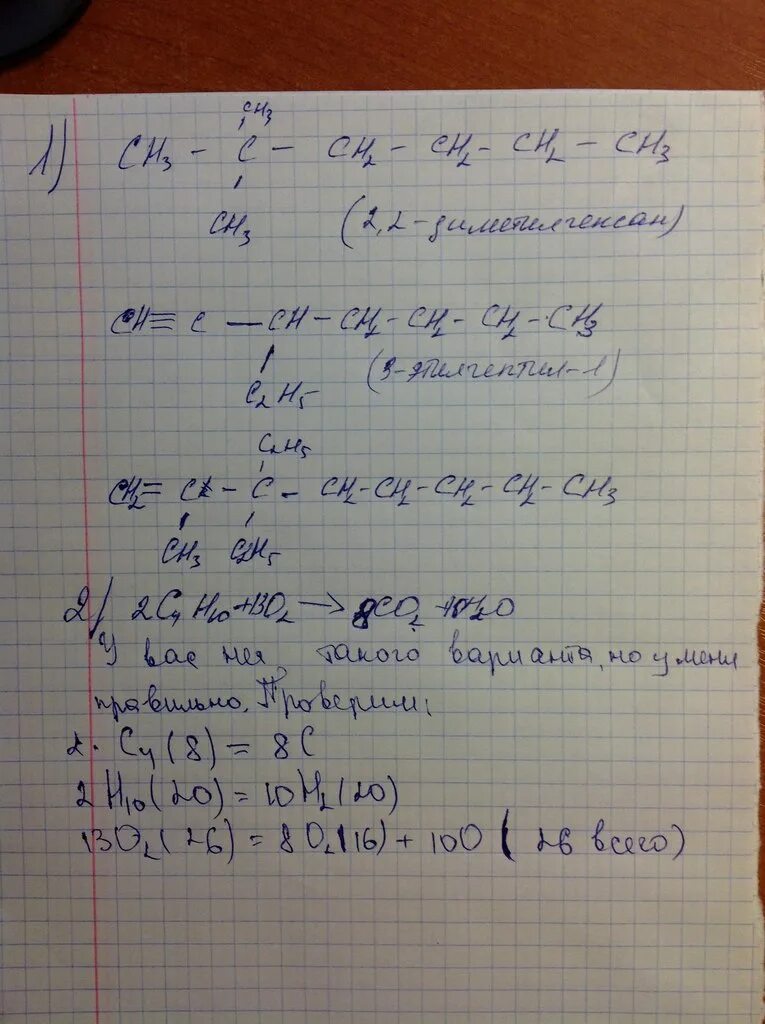 CH3
1) CH3 - C - CH2 - CH2 - CH2 - CH3
CH3 (2,2-диметилгексан)
CH≡C - CH - CH2 - CH2 - CH2 - CH3
C2H5 (3-этилгептил-1)
C2H5
CH2= C - C - CH2 - CH2 - CH2 - CH2 - CH3
CH3 C2H5
2) 2C4H10 + 13O2 → 8CO2 + 10H2O
У вас нет такого варианта, но у меня
правильно. Проверим:
2. C4 (8) = 8C
2H10 (20) = 10H2 (20)
13O2 (26) = 8O2 (16) + 10O (26 всего)